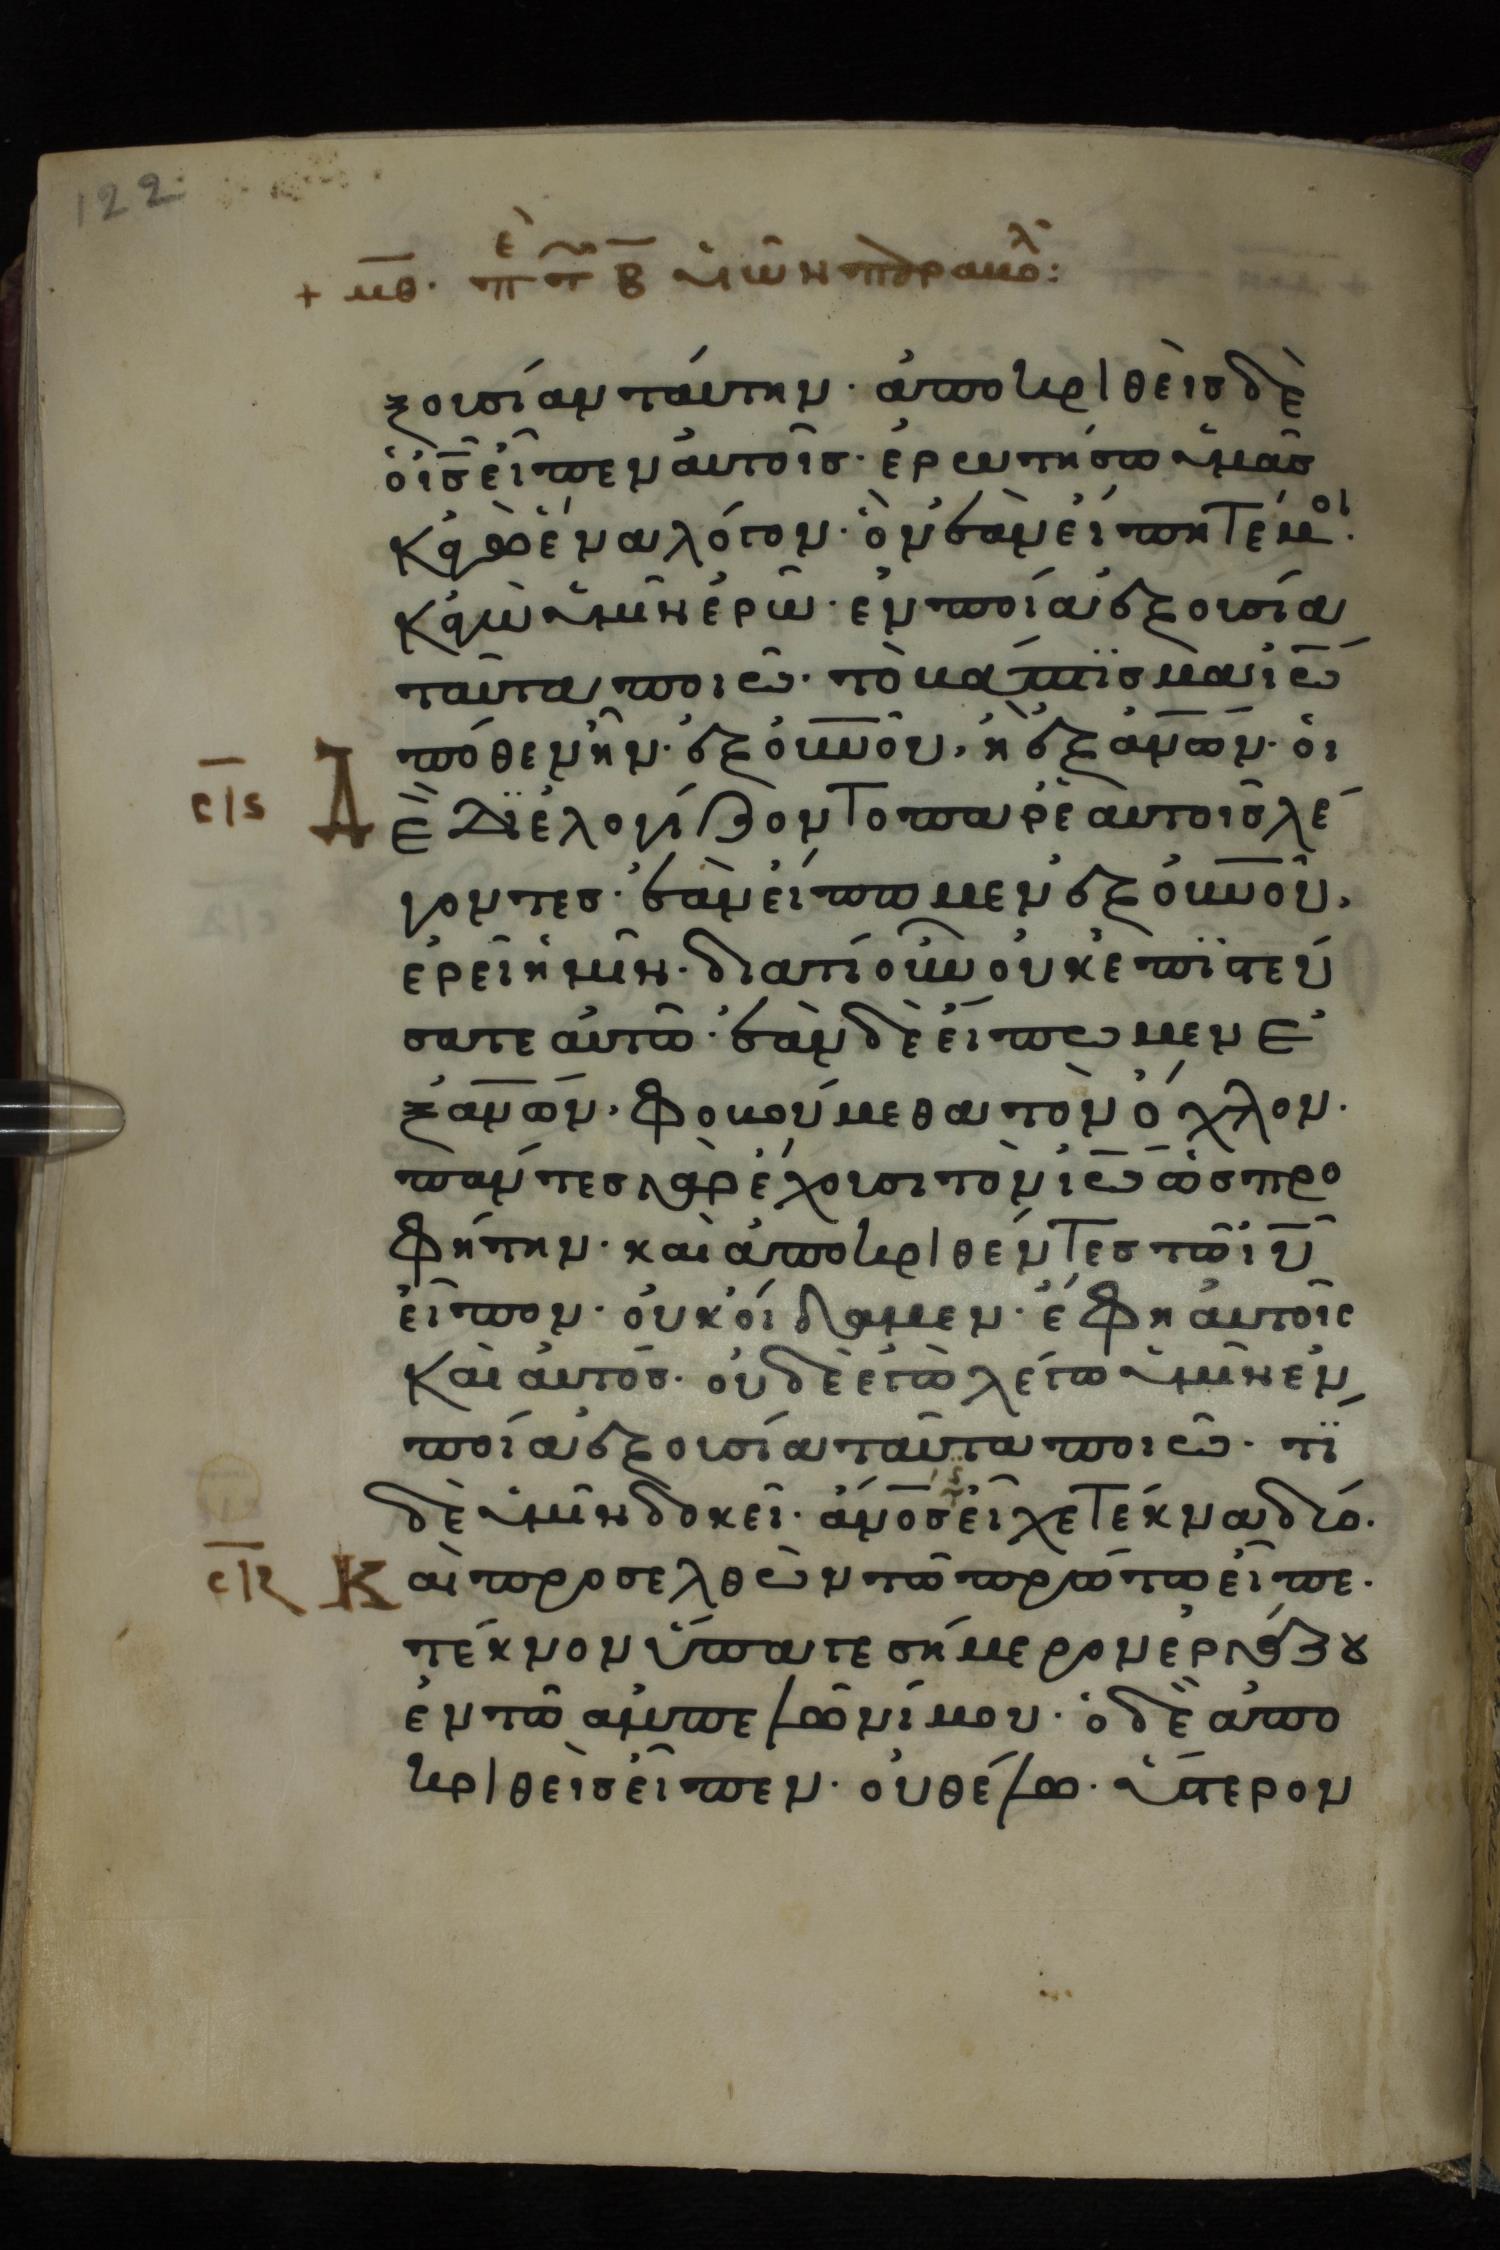 122
+ μθ· πε τ β υἱῶν παραβολ:
ξουσίαν ταύτην· ἀποκριθεὶς δὲ
ὁ ις εἶπεν αὐτοῖς· ἐρωτήσω ὑμᾶς
κἀγὼ ἕνα λόγον· ὃν ἐὰν εἴπητέ μοι·
κἀγὼ ὑμῖν ἐρῶ· ἐν ποία ἐξουσία
ταῦτα ποιῶ· τὸ βάπτισμα ἰω
πόθεν ἦν· ἐξ οὐνοῦ, ἢ ἐξ ἀνων· οἱ
ς
Δ
Ε διελογίζοντο παρ' ἑαυτοῖς λέ
γοντες· ἐὰν εἴπωμεν ἐξ οὐνοῦ,
ἐρεῖ ἡμῖν· διατί οὖν οὐκ ἐπιστεύ
σατε αὐτῶ· ἐὰν δὲ εἴπωμεν ἐ
ξ ἀνων, φοβούμεθα τὸν ὄχλον·
πάντες γὰρ ἔχουσι τὸν ἰω ὡς προ
φήτην· καὶ ἀποκριθέντες τῶ ἰυ
εἶπον· οὐκ οἴδαμεν· ἔφη αὐτοῖς
καὶ αὐτός· οὐδὲ ἐγὼ λέγω ὑμῖν ἐν
ποία ἐξουσία ταῦτα ποιῶ· τί
δὲ ὑμῖν δοκεῖ· ἀνος εἶχε τέκνα δύο·
Κ
αὶ προσελθὼν τῶ πρώτω εἶπε·
τέκνον ὕπαγε σήμερον ἐργάζου
ἐν τῶ ἀμπελῶνί μου· ὁ δὲ ἀπο
κριθεὶς εἶπεν· οὐ θέλω· ὕστερον